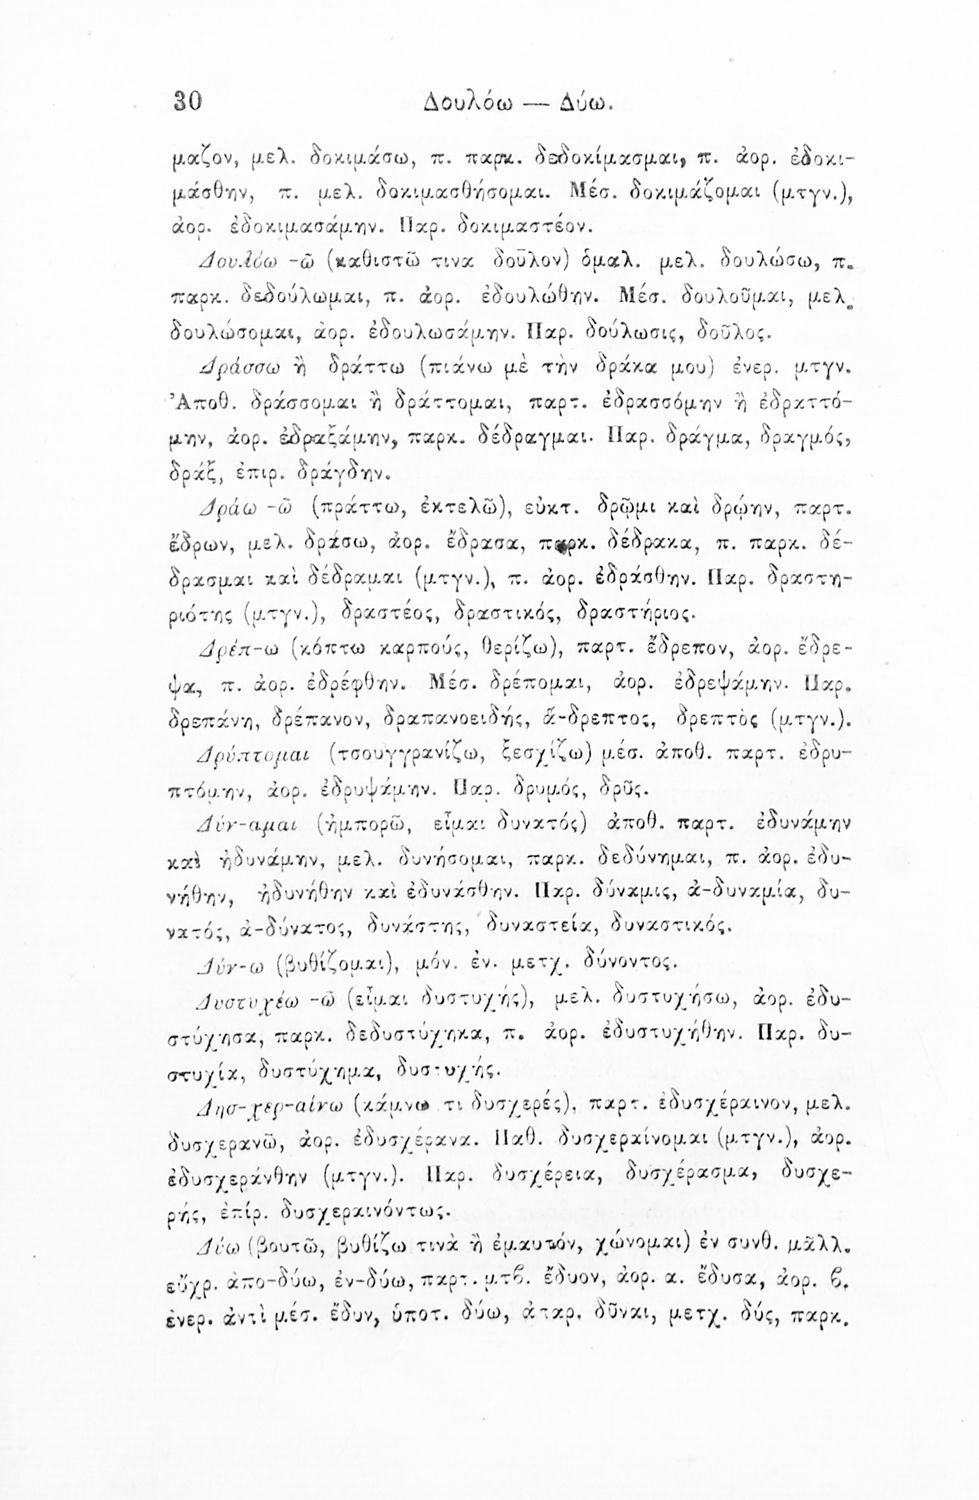 30 Δουλόω — Δύω.
μαζον, μελ. δοκιμάσω, π. παρκ. δεδοκίμασμαι, π. ἀορ. ἐδοκι-
μάσθην, π. μελ. δοκιμασθήσομαι. Μέσ. δοκιμάζομαι (μτγν.),
ἀορ. ἐδοκιμασάμην. Παρ. δοκιμαστέον.
Δουλόω -ῶ (καθιστῶ τινα δοῦλον) ὁμαλ. μελ. δουλώσω, π.
παρκ. δεδούλωμαι, π. ἀορ. ἐδουλώθην. Μέσ. δουλοῦμαι, μελ.
δουλώσομαι, ἀορ. ἐδουλωσάμην. Παρ. δούλωσις, δοῦλος.
Δράσσω ἢ δράττω (πιάνω μὲ τὴν δράκα μου) ἐνερ. μτγν.
Ἀποθ. δράσσομαι ἢ δράττομαι, παρτ. ἐδρασσόμην ἢ ἐδραττό-
μην, ἀορ. ἐδραξάμην, παρκ. δέδραγμαι. Παρ. δράγμα, δραγμός,
δράξ, ἐπιρ. δράγδην.
Δράω -ῶ (πράττω, ἐκτελῶ), εὐκτ. δρῷμι καὶ δρῴην, παρτ.
ἔδρων, μελ. δράσω, ἀορ. ἔδρασα, παρκ. δέδρακα, π. παρκ. δέ-
δρασμαι καὶ δέδραμαι (μτγν.), π. ἀορ. ἐδράσθην. Παρ. δραστη-
ριότης (μτγν.), δραστέος, δραστικός, δραστήριος.
Δρέπ-ω (κόπτω καρπούς, θερίζω), παρτ. ἔδρεπον, ἀορ. ἔδρε-
ψα, π. ἀορ. ἐδρέφθην. Μέσ. δρέπομαι, ἀορ. ἐδρεψάμην. Παρ.
δρεπάνη, δρέπανον, δραπανοειδής, ἄ-δρεπτος, δρεπτὸς (μτγν.).
Δρύπτομαι (τσουγγρανίζω, ξεσχίζω) μέσ. ἀποθ. παρτ. ἐδρυ-
πτόμην, ἀορ. ἐδρυψάμην. Παρ. δρυμός, δρῦς.
Δύν-αμαι (ἠμπορῶ, εἶμαι δυνατός) ἀποθ. παρτ. ἐδυνάμην
καὶ ἠδυνάμην, μελ. δυνήσομαι, παρκ. δεδύνημαι, π. ἀορ. ἐδυ-
νήθην, ἠδυνήθην καὶ ἐδυνάσθην. Παρ. δύναμις, ἀ-δυναμία, δυ-
νατός, ἀ-δύνατος, δυνάστης, δυναστεία, δυναστικός.
Δύν-ω (βυθίζομαι), μόν. ἐν. μετχ. δύνοντος.
Δυστυχέω -ῶ (εἶμαι δυστυχής), μελ. δυστυχήσω, ἀορ. ἐδυ-
στύχησα, παρκ. δεδυστύχηκα, π. ἀορ. ἐδυστυχήθην. Παρ. δυ-
στυχία, δυστύχημα, δυστυχής.
Δησ-χερ-αίνω (κάμνω τι δυσχερές), παρτ. ἐδυσχέραινον, μελ.
δυσχερανῶ, ἀορ. ἐδυσχέρανα. Παθ. δυσχεραίνομαι (μτγν.), ἀορ.
ἐδυσχεράνθην (μτγν.). Παρ. δυσχέρεια, δυσχέρασμα, δυσχε-
ρής, ἐπίρ. δυσχεραινόντως.
Δύω (βουτῶ, βυθίζω τινὰ ἢ ἐμαυτόν, χώνομαι) ἐν συνθ. μᾶλλ.
εὔχρ. ἀπο-δύω, ἐν-δύω, παρτ. μτβ. ἔδυον, ἀορ. α. ἔδυσα, ἀορ. β.
ἐνερ. ἀντὶ μέσ. ἔδυν, ὑποτ. δύω, ἀπαρ. δῦναι, μετχ. δύς, παρκ.